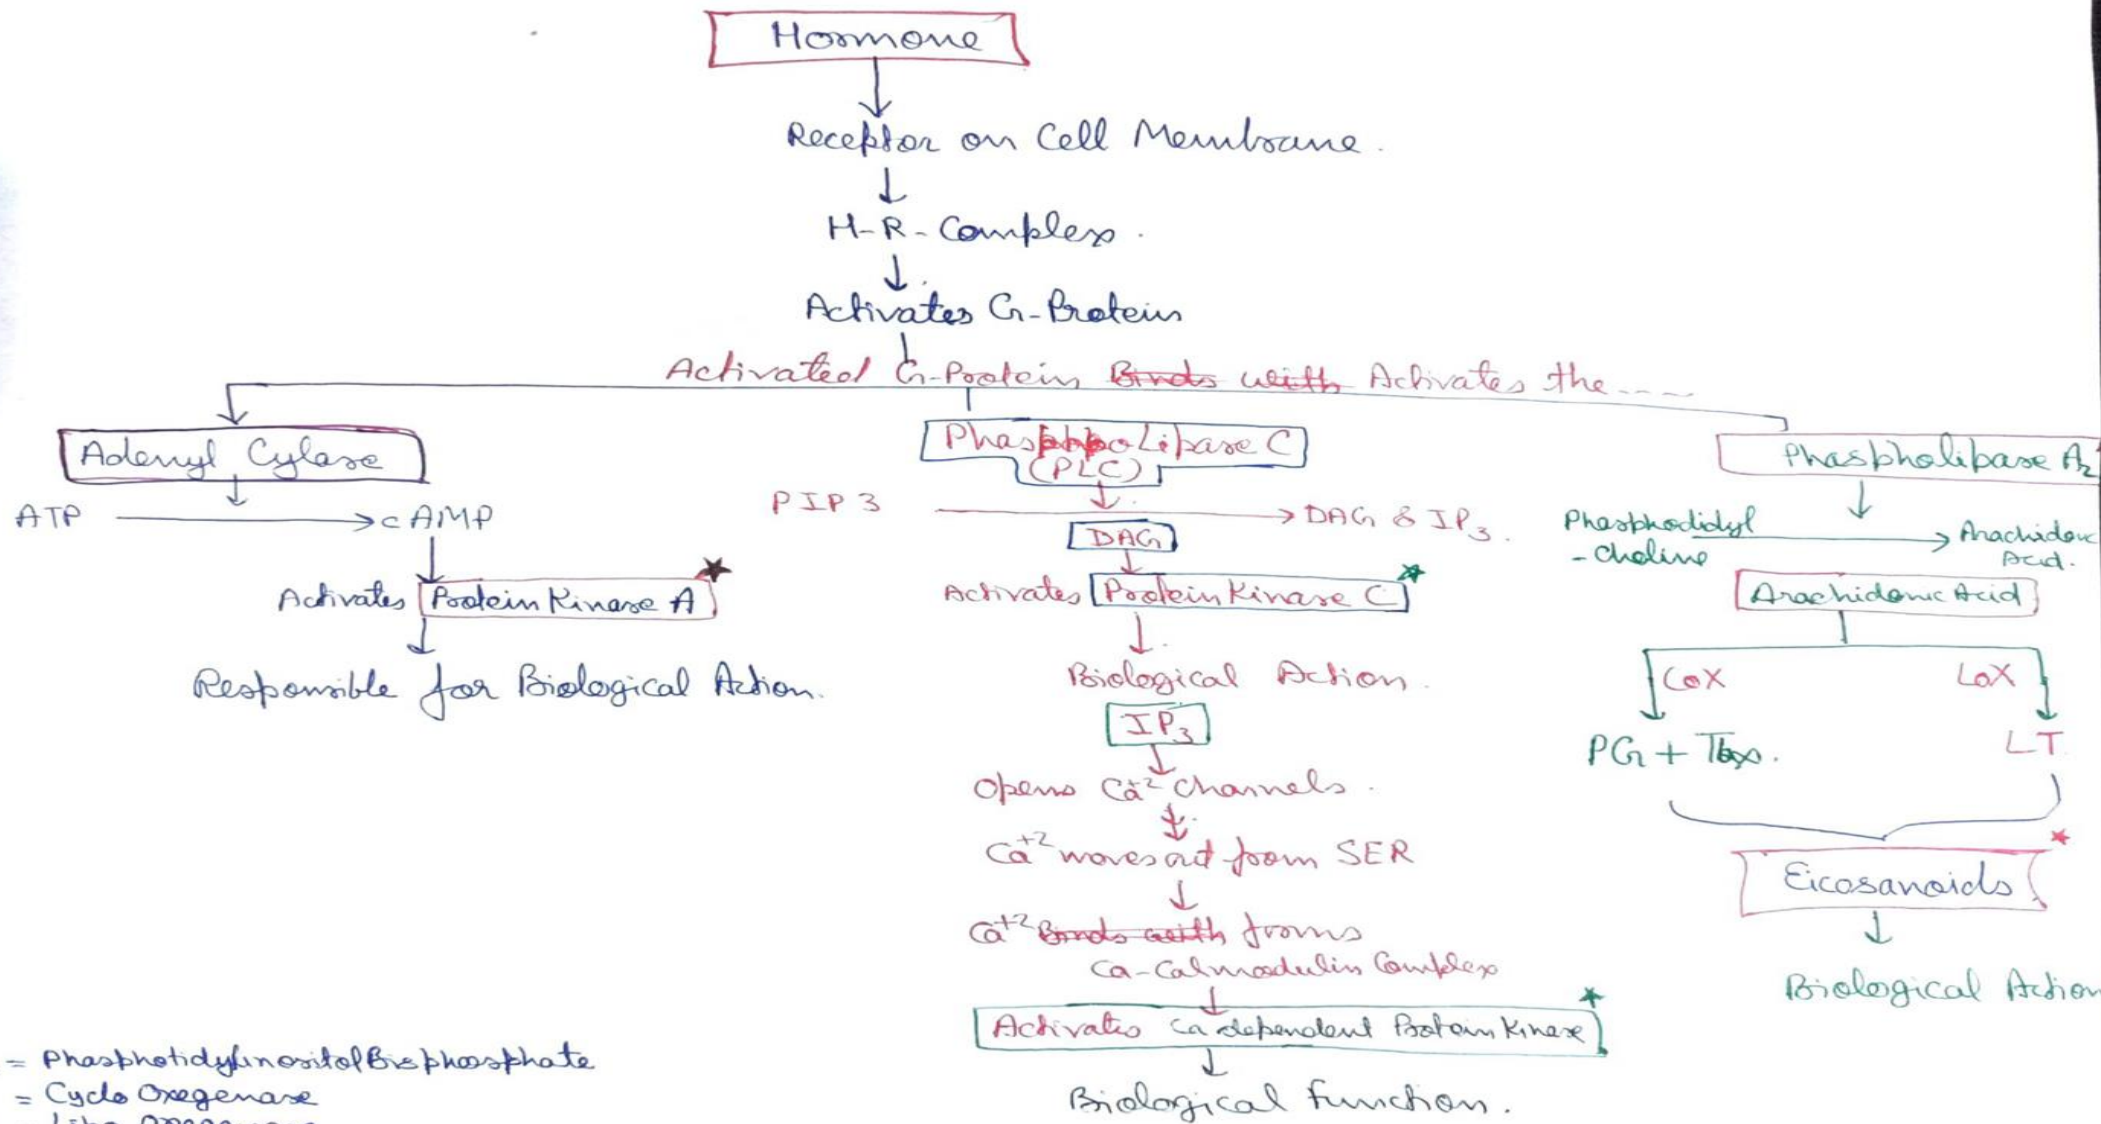 Hormone
Receptor on Cell Membrane.
H-R-Complex.
Activates G-Protein
Activated G-Protein Binds with Activates the----
Adenyl Cylase
ATP → cAMP
Activates Protein Kinase A
Responsible for Biological Action.
PhasphoLipase C
(PLC)
PIP3 → DAG & IP3.
DAG
Activates Protein Kinase C
Biological Action.
IP3
Opens Ca+2 channels.
Ca+2 moves out from SER
Ca+2 Binds with froms
Ca-Calmodulin Complex
Activates Ca dependent Protein Kinase
Biological Function.
Phaspholipase A2
Phasphodidyl
-choline → Arachidonc
Acid.
Arachidonic Acid
COX LOX
PG + Tbx. LT
Eicosanoids
Biological Action
= PhasphotidylinositolBisphosphate
= Cyclo Oxegenase